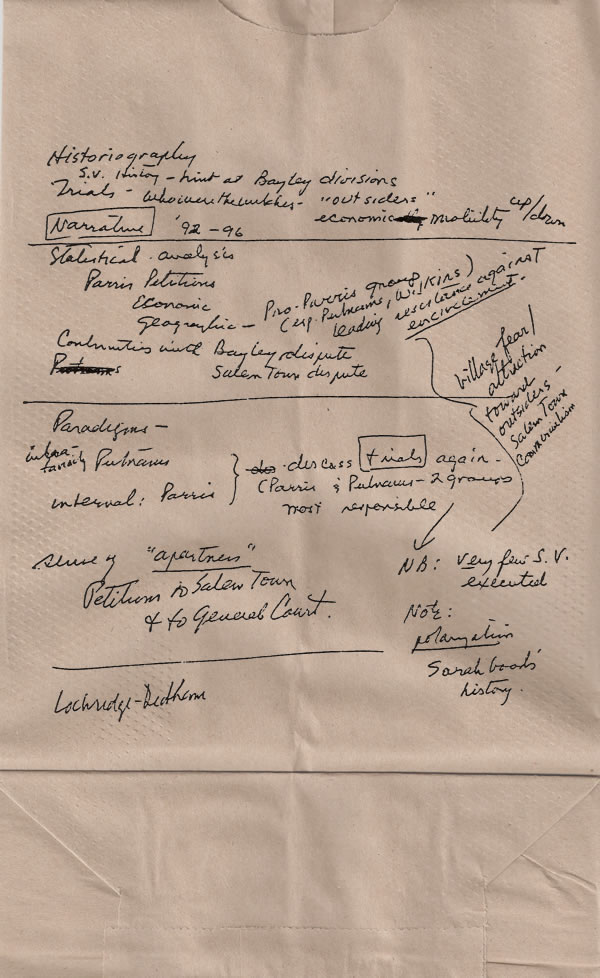 Historiography
S.V. History - hint at Bayley divisions
Trials - who were the witches - "outsiders"
economic mobility up/down
Narrative '92-96
Statistical analysis
Parris Petitions
Economic
Geographic - Pro-Parris group
(esp. Putnams, Wilkins)
leading resistance against
encirclement.
Continuities with Bayley dispute
Putnams Salem Town dispute
Village fear/
attraction
toward
outsiders -
Salem Town
Commercialism
Paradigms -
Putnams
internal: Parris
discuss trials again -
(Parris & Putnams - 2 groups
most responsible
sense of "apartness"
Petitions to Salem Town
& to General Court.
NB: very few S.V.
executed
Note:
polarization
Sarah Goods'
history.
Lockridge-Dedham